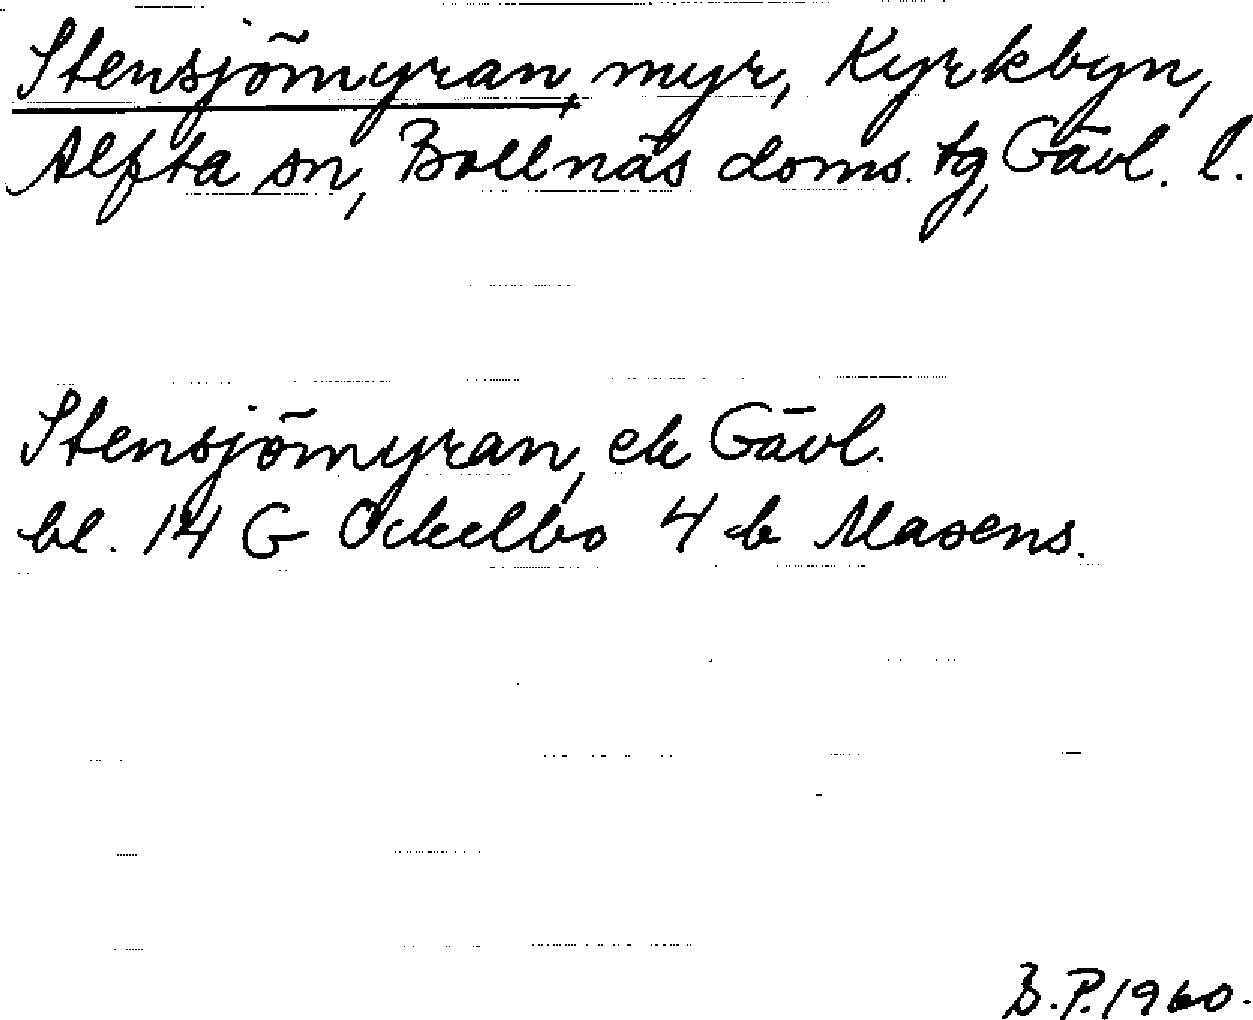 Stensjömyran, myr, Kyrkbyn,
Alfta sn, Bollnäs doms. tg, Gävl. l.
Stensjömyran, ek Gävl.
bl. 14 G Ockelbo 4 b Masens.
B.P. 1960.